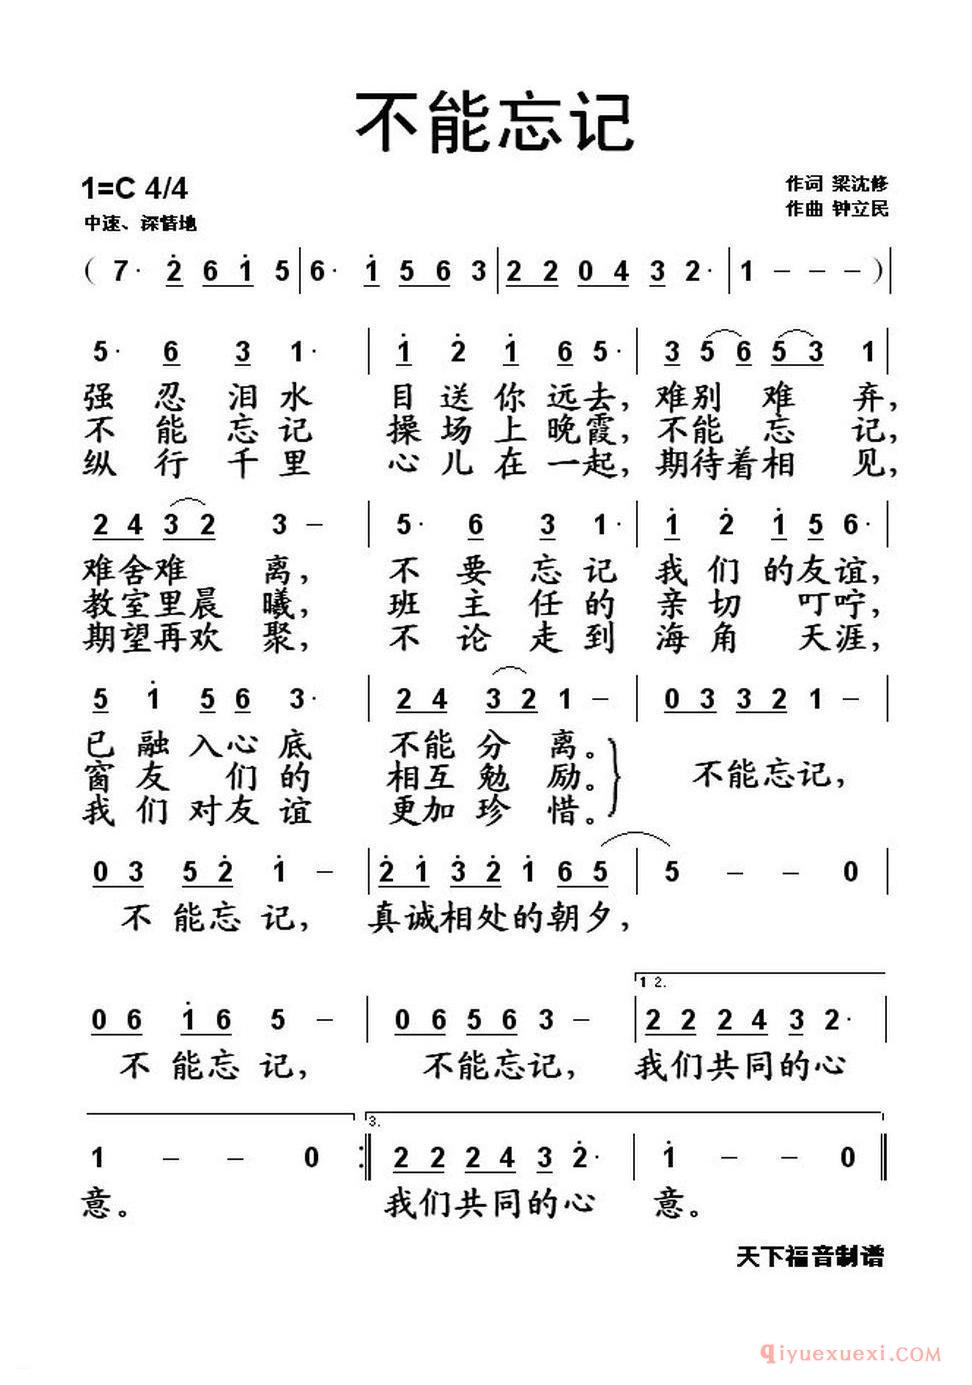 不能忘记
1=C 4/4
作词 梁沈修
中速、深情地
作曲 钟立民
( 7· 2 6 1 5 | 6· 1 5 6 3 | 2 2 0 4 3 2· | 1 - - - ) |
5· 6 3 1· | 1 2 1 6 5· | 3 5 6 5 3 1 |
强忍泪水 目送你远去，难别难弃，
不能忘记 操场上晚霞，不能忘记，
纵行千里 心儿在一起，期待着相见，
2 4 3 2 3 - | 5· 6 3 1· | 1 2 1 5 6· |
难舍难离， 不要忘记 我们的友谊，
教室里晨曦， 班主任的 亲切叮咛，
期望再欢聚， 不论走到 海角天涯，
5 1 5 6 3· | 2 4 3 2 1 - | 0 3 3 2 1 - |
已融入心底 不能分离。
窗友们的 相互勉励。 不能忘记，
我们对友谊 更加珍惜。
0 3 5 2 1 - | 2 1 3 2 1 6 5 | 5 - - 0 |
不能忘记， 真诚相处的朝夕，
1 2.
0 6 1 6 5 - | 0 6 5 6 3 - | 2 2 2 4 3 2· |
不能忘记， 不能忘记， 我们共同的心
3.
1 - - 0 :|| 2 2 2 4 3 2· | 1 - - 0 ||
意。 我们共同的心 意。
天下福音制谱
qiyuexuexi.com